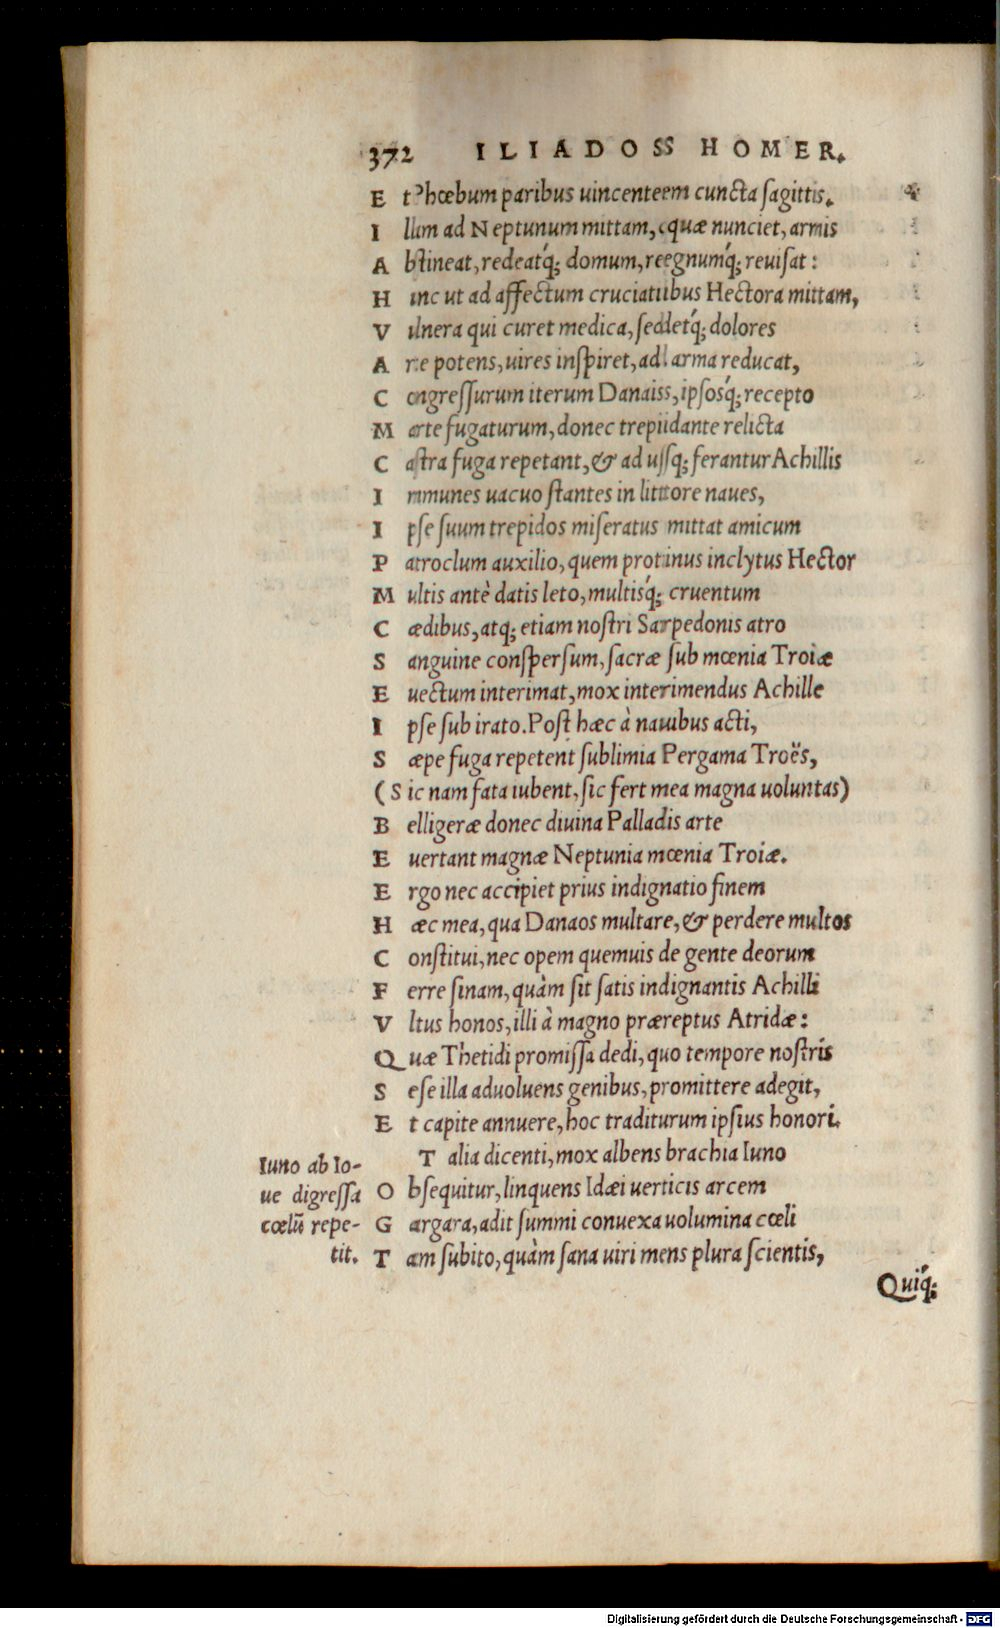 372 ILIADOS HOMER.
Et Phœbum paribus uincentem cuncta sagittis.
Illam ad Neptunum mittam, quæ nunciet, armis
Abstineat, redeatq́; domum, regnumq́; reuisat:
Hinc ut ad affectum cruciatibus Hectora mittam,
Vulnera qui curet medica, sedetq́; dolores
Arte potens, uires inspiret, ad arma reducat,
Congressurum iterum Danais, ipsosq́; recepto
Marte fugaturum, donec trepidante relicta
Castra fuga repetant, & ad usq; ferantur Achillis
Immunes uacuo stantes in littore naues,
Ipse suum trepidos miseratus mittat amicum
Patroclum auxilio, quem protinus inclytus Hector
Multis antè datis leto, multisq́; cruentum
Cædibus, atq; etiam nostri Sarpedonis atro
Sanguine conspersum, sacræ sub mœnia Troiæ
Euectum interimat, mox interimendus Achille
Ipse sub irato. Post hæc à nauibus acti,
Sæpe fuga repetent sublimia Pergama Troës,
(Sic nam fata iubent, sic fert mea magna uoluntas)
Belligeræ donec diuina Palladis arte
Euertant magnæ Neptunia mœnia Troiæ.
Ergo nec accipiet prius indignatio finem
Hæc mea, qua Danaos multare, & perdere multos
Constitui, nec opem quemuis de gente deorum
Ferre sinam, quàm sit satis indignantis Achilli
Vltus honos, illi à magno præreptus Atridæ:
Quæ Thetidi promissa dedi, quo tempore nostris
Sese illa aduoluens genibus, promittere adegit,
Et capite annuere, hoc traditurum ipsius honori.
Talia dicenti, mox albens brachia Iuno
Obsequitur, linquens Idæi uerticis arcem
Gargara, adit summi conuexa uolumina cœli
Tam subito, quàm sana uiri mens plura scientis,
Iuno ab Io-
ue digressa
cœlũ repe-
tit.
Quiq́;
Digitalisierung gefördert durch die Deutsche Forschungsgemeinschaft - DFG